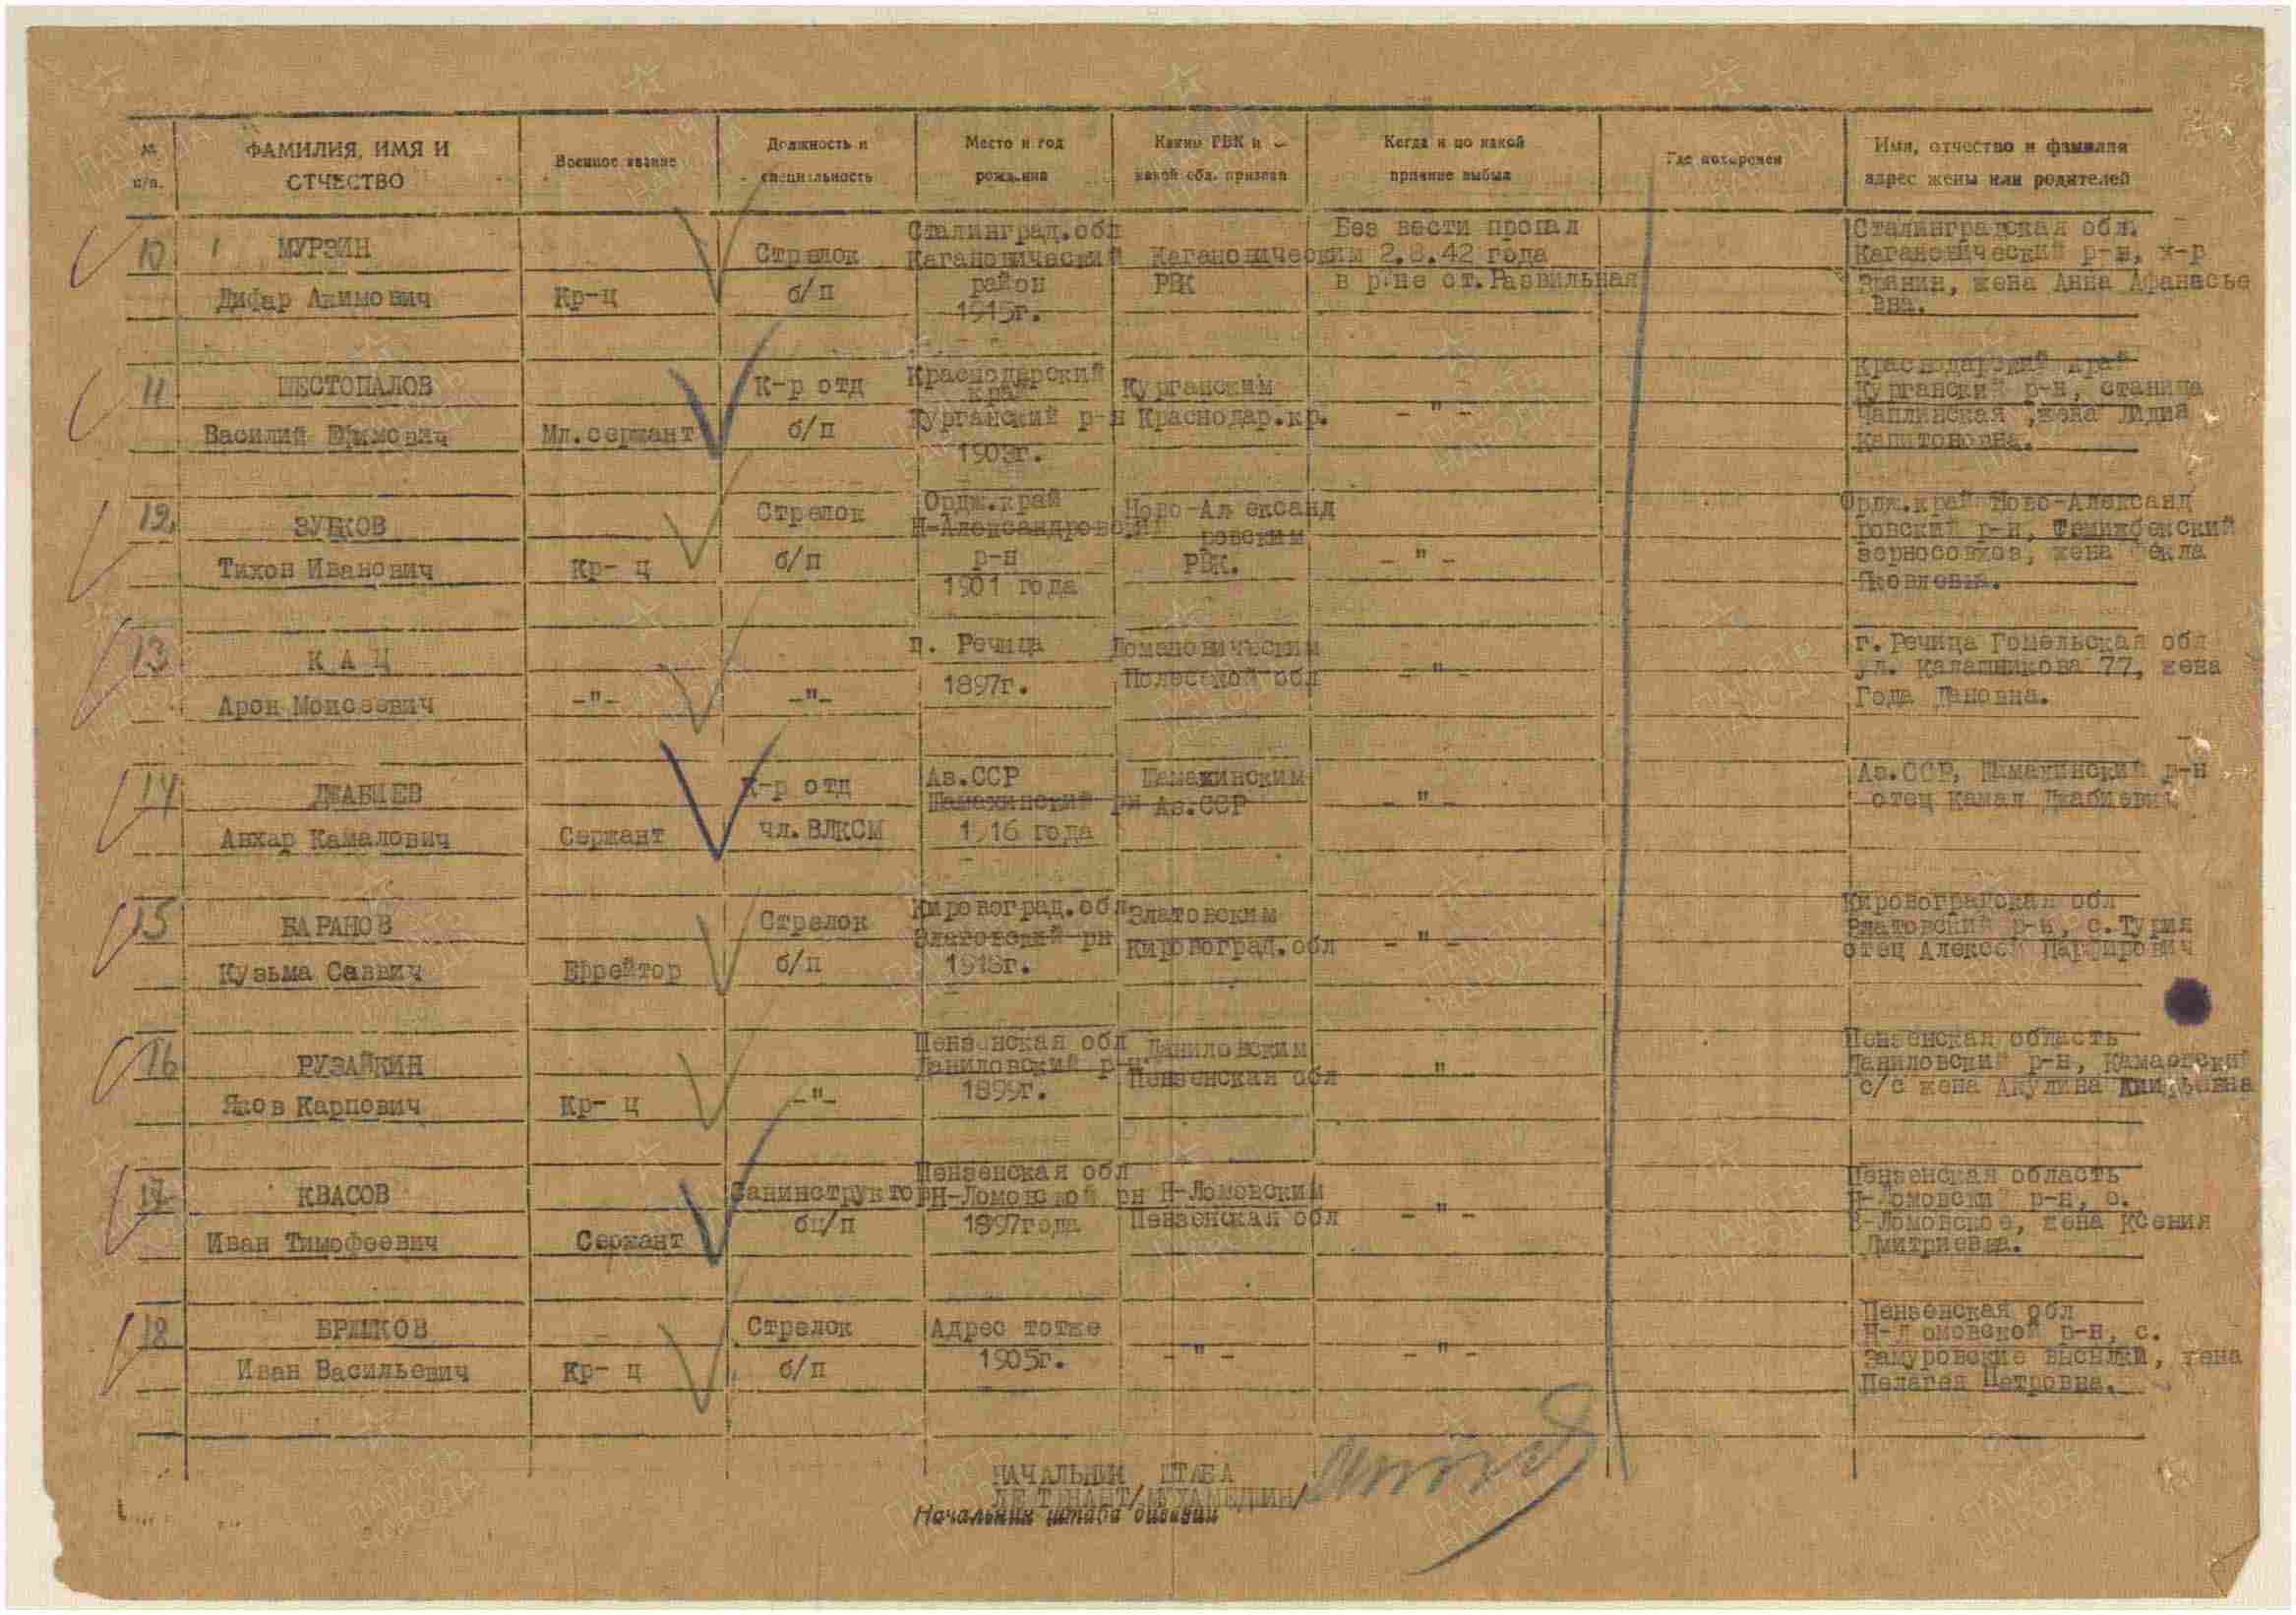 № п/п.
ФАМИЛИЯ, ИМЯ И ОТЧЕСТВО
Военное звание
Должность и специальность
Место и год рождения
Каким РВК и какой обл. призван
Когда и по какой причине выбыл
Где похоронен
Имя, отчество и фамилия адрес жены или родителей
10
МУРЗИН
Дифар Акимович
Кр-ц
Стрелок
б/п
Сталинград.обл
Кагановический
район
1915г.
Кагановическим
РВК
Без вести пропал
2.8.42 года
в р-не ст. Развильная
Сталинградская обл.
Кагановический р-н, х-р
Зрянин, жена Анна Афанасье
вна.
11
ШЕСТОПАЛОВ
Василий Ефимович
Мл.сержант
К-р отд
б/п
Краснодарский
край
Курганский р-н
1903г.
Курганским
Краснодар.кр.
-"-
Краснодарский край
Курганский р-н, станица
Чаплинская ,жена Лидия
Капитоновна.
12
ЗУБКОВ
Тихон Иванович
Кр- ц
Стрелок
б/п
Ордж.край
Н-Александровский
р-н
1901 года
Ново-Александ
ровским
РВК.
-"-
Ордж.край Ново-Александ
ровский р-н, Темижбекский
зерносовхоз, жена Фекла
Яковлевна.
13
К А Ц
Арон Моисеевич
-"-
-"-
г. Речица
1897г.
Домановическим
Полесской обл
-"-
г. Речица Гомельская обл
ул. Калашникова 77, жена
Года Лановна.
14
ДЖАБИЕВ
Анхар Камалович
Сержант
К-р отд
чл.ВЛКСМ
Аз.ССР
Шамахинский рн
1916 года
Шамахинским
Аз.ССР
-"-
Аз.ССР, Шамахинский р-н
отец Камал Джабиевич
15
БАРАНОВ
Кузьма Саввич
Ефрейтор
Стрелок
б/п
Кировоград.обл
Златовский рн
1918г.
Златовским
Кировоград.обл
-"-
Кировоградская обл
Златовский р-н, с.Турия
отец Алексей Парфирович
16
РУЗАЙКИН
Яков Карпович
Кр- ц
-"-
Пензенская обл
Даниловский р-н
1899г.
Даниловским
Пензенская обл
-"-
Пензенская область
Даниловский р-н,
с/с жена Акулина
17
КВАСОВ
Иван Тимофеевич
Сержант
Санинструктор
бц/п
Пензенская обл
Н-Ломовской рн
1897года
Н-Ломовским
Пензенская обл
-"-
Пензенская область
Н-Ломовский р-н, с.
В-Ломовское, жена Ксения
Дмитриевна.
18
ЕРШКОВ
Иван Васильевич
Кр- ц
Стрелок
б/п
Адрес тотже
1905г.
-"-
-"-
Пензенская обл
Н-Ломовской р-н, с.
Замуровские высилки, жена
Пелагея Петровна.
НАЧАЛЬНИК ШТАБА
ЛЕЙТЕНАНТ/МУХАМЕДШИН/
Начальник штаба дивизии